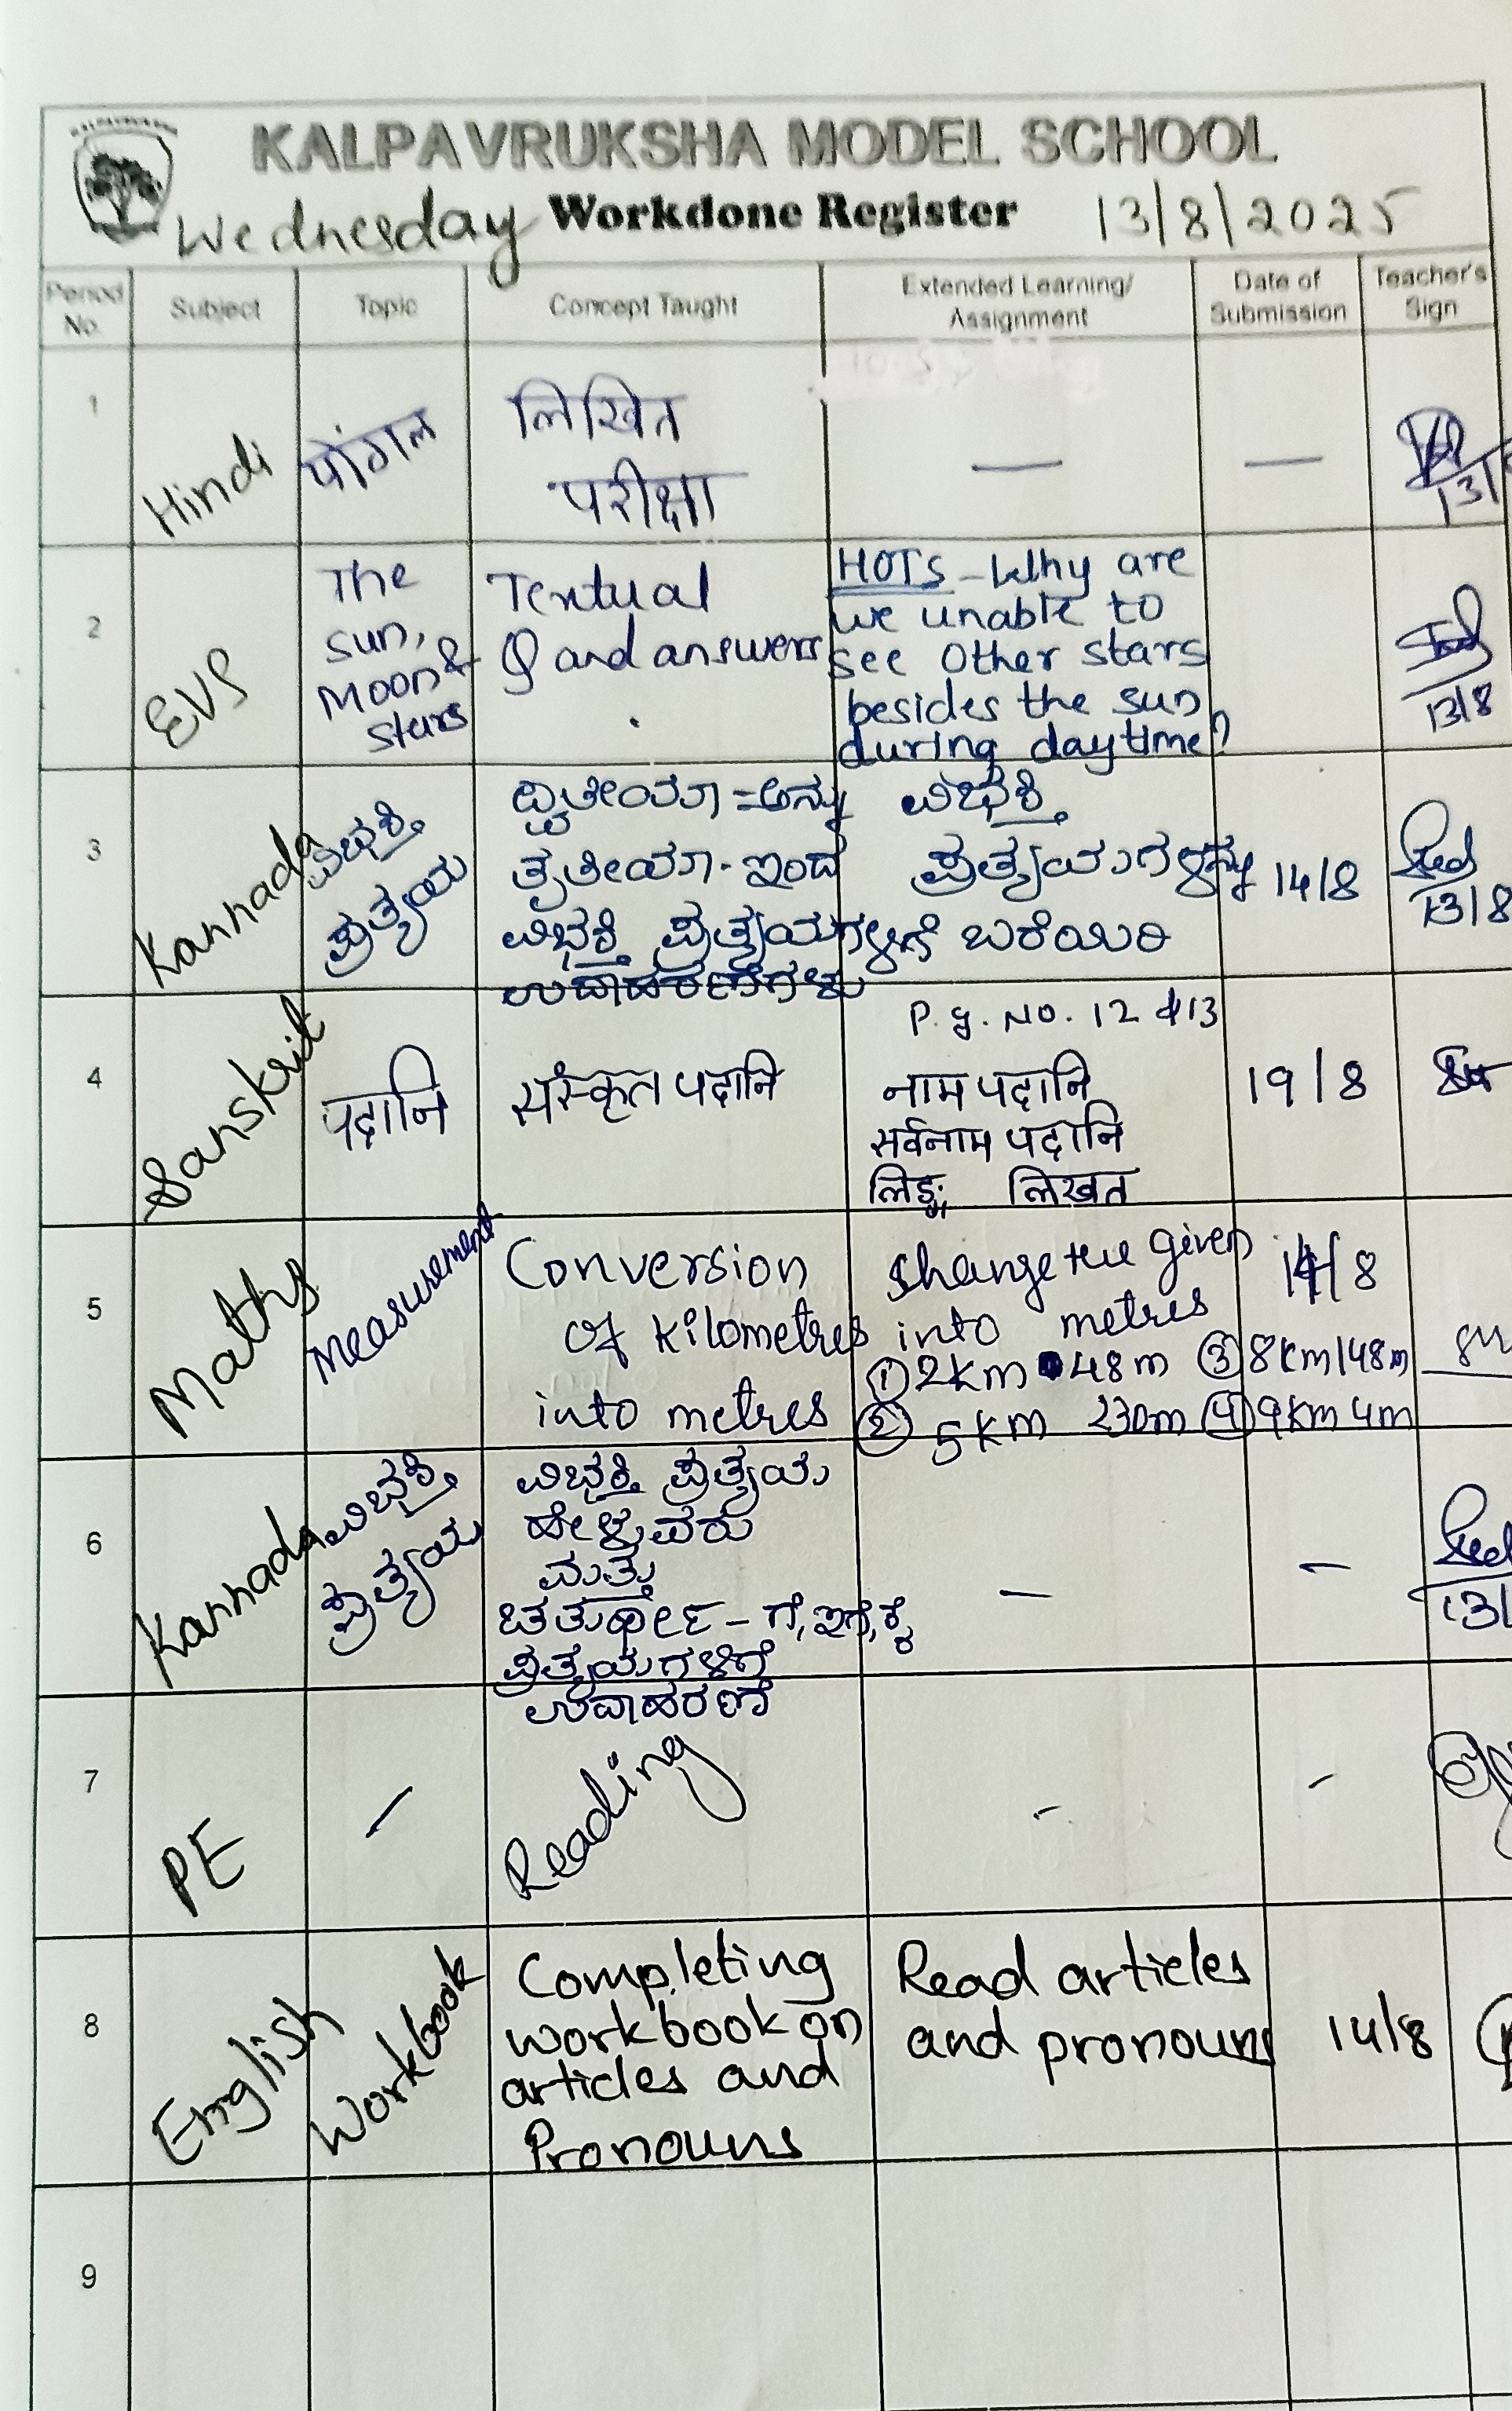 KALPAVRUKSHA
KALPAVRUKSHA MODEL SCHOOL
Wednesday Workdone Register 13/8/2025
Period No. Subject Topic Concept Taught Extended Learning/ Assignment Date of Submission Teacher's Sign
1 Hindi पोंगल लिखित
परीक्षा — —
13/
2 EVS The
sun,
Moon &
stars
Textual
Q and answers
HOTS - Why are
we unable to
see other stars
besides the sun
during daytime?
13/8
3 Kannada ವಿಭಕ್ತಿ
ಪ್ರತ್ಯಯ
ದ್ವಿತೀಯಾ = ಅನ್ನು
ತೃತೀಯಾ - ಇಂದ
ವಿಭಕ್ತಿ ಪ್ರತ್ಯಯಗಳಿಗೆ
ಉದಾಹರಣೆಗಳು
ವಿಭಕ್ತಿ
ಪ್ರತ್ಯಯಗಳನ್ನು
ಬರೆಯಿರಿ
14/8
13/8
4 Sanskrit पदानि संस्कृत पदानि
P.g. No. 12 & 13
नाम पदानि
सर्वनाम पदानि
लिङ्गः लिखत
19/8
5 Maths Measurement
Conversion
of kilometres
into metres
Change the given
into metres
① 2km 48m ③ 8km 148m
② 5km 230m ④ 9km 4m
14/8
6 Kannada ವಿಭಕ್ತಿ
ಪ್ರತ್ಯಯ
ವಿಭಕ್ತಿ ಪ್ರತ್ಯಯ
ಹೇಳುವರು
ಮತ್ತು
ಚತುರ್ಥೀ - ಗೆ, ಇಗೆ, ಕ್ಕೆ
ಪ್ರತ್ಯಯಗಳಿಗೆ
ಉದಾಹರಣೆ
— —
13/
7 PE — Reading - -
8 English Workbook
Completing
workbook on
articles and
Pronouns
Read articles
and pronouns
14/8
9